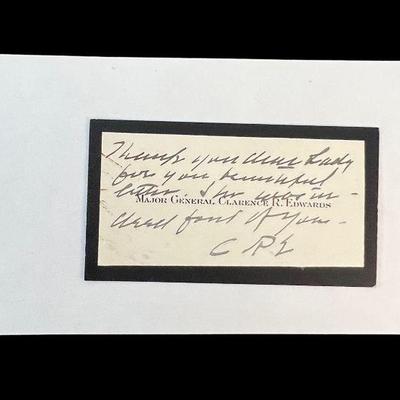 Thank you dear Lady
for you beautiful
letter. She was in-
MAJOR GENERAL CLARENCE R. EDWARDS
deed fond of you -
C R E